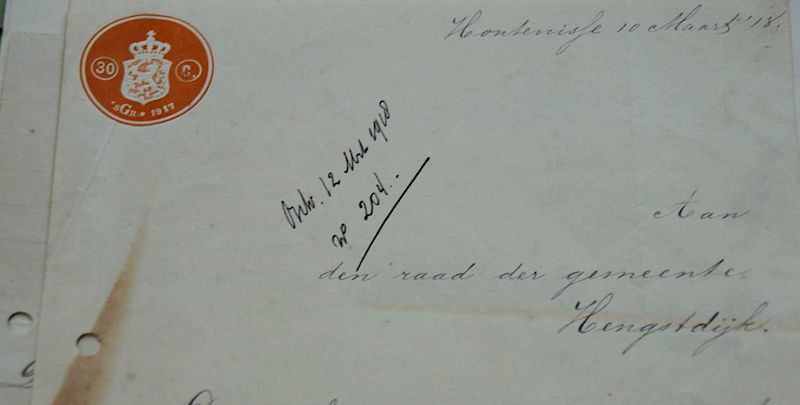 Hontenisse 10 Maart '18.
30 C.
'sGr. * 1917
Ontv. 12 Mrt 1918
No 204.-
Aan
den raad der gemeente
Hengstdijk.